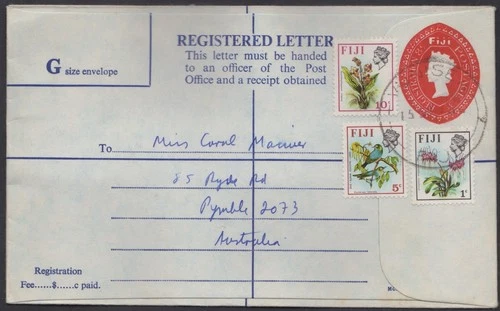 REGISTERED LETTER
This letter must be handed
to an officer of the Post
Office and a receipt obtained
G size envelope
FIJI
10c
FIJI
FIJI
5c
FIJI
1c
15
To
Miss Coral
85 Ryde Rd
Pymble 2073
Australia
Registration
Fee......$......c paid.